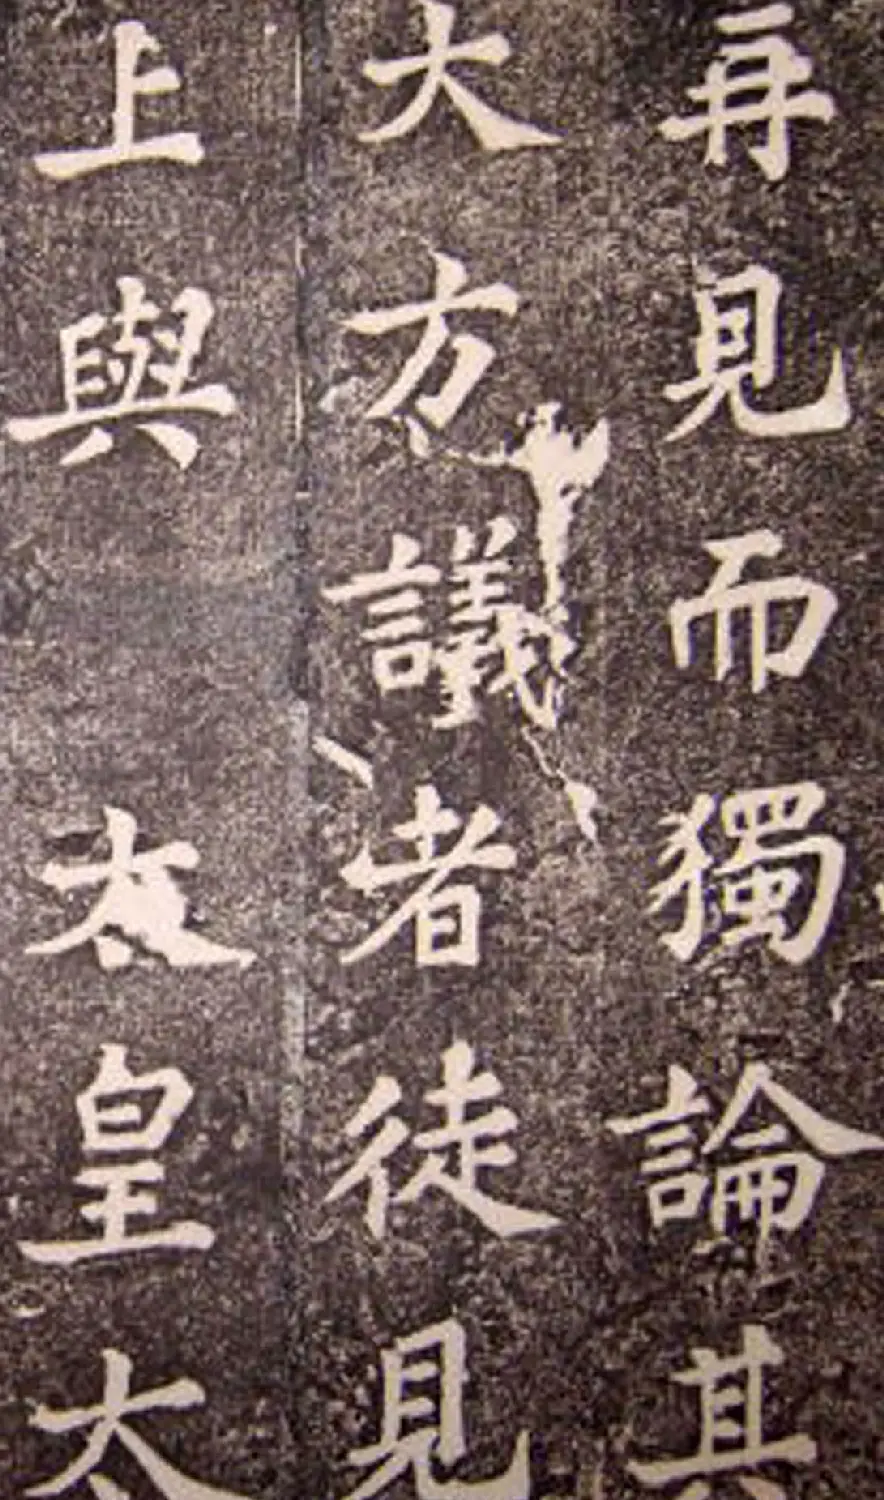 再見而獨論其
大方議者徒見
上與太皇太